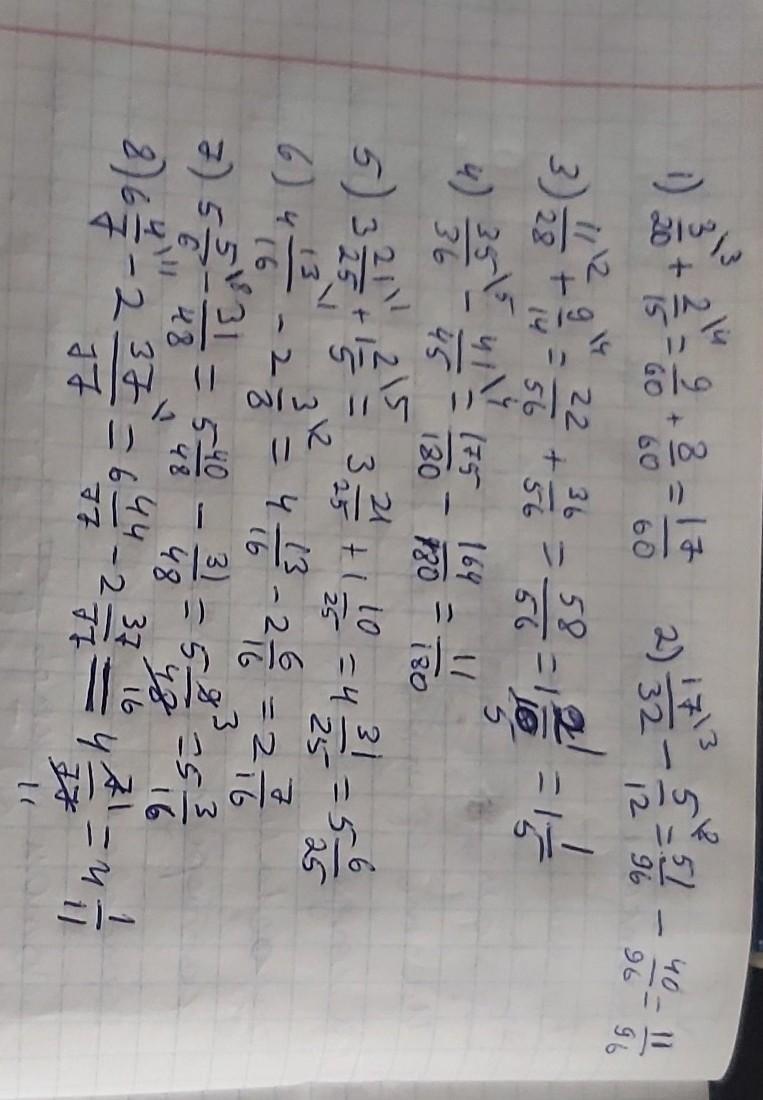 1) 3\3/20 + 2\4/15 = 9/60 + 8/60 = 17/60 2) 17\3/32 - 5\8/12 = 51/96 - 40/96 = 11/96
3) 11\2/28 + 9\4/14 = 22/56 + 36/56 = 58/56 = 1 2 1/10 5 = 1 1/5
4) 35\5/36 - 41\4/45 = 175/180 - 164/180 = 11/180
5) 3 21\1/25 + 1 2\5/5 = 3 21/25 + 1 10/25 = 4 31/25 = 5 6/25
6) 4 13\1/16 - 2 3\2/8 = 4 13/16 - 2 6/16 = 2 7/16
7) 5 5\8/6 - 31/48 = 5 40/48 - 31/48 = 5 9 3/48 16 = 5 3/16
8) 6 4\11/7 - 2 37\1/77 = 6 44/77 - 2 37/77 = 4 7 1/77 11 = 4 1/11